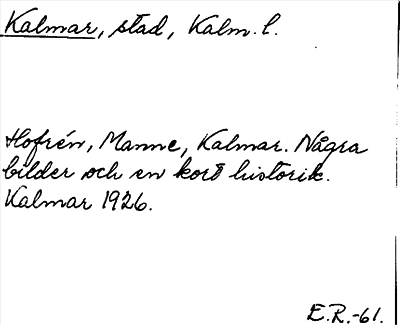 Kalmar, stad, Kalm. l.
Hofrén, Manne, Kalmar. Några
bilder och en kort historik.
Kalmar 1926.
E.R.-61.